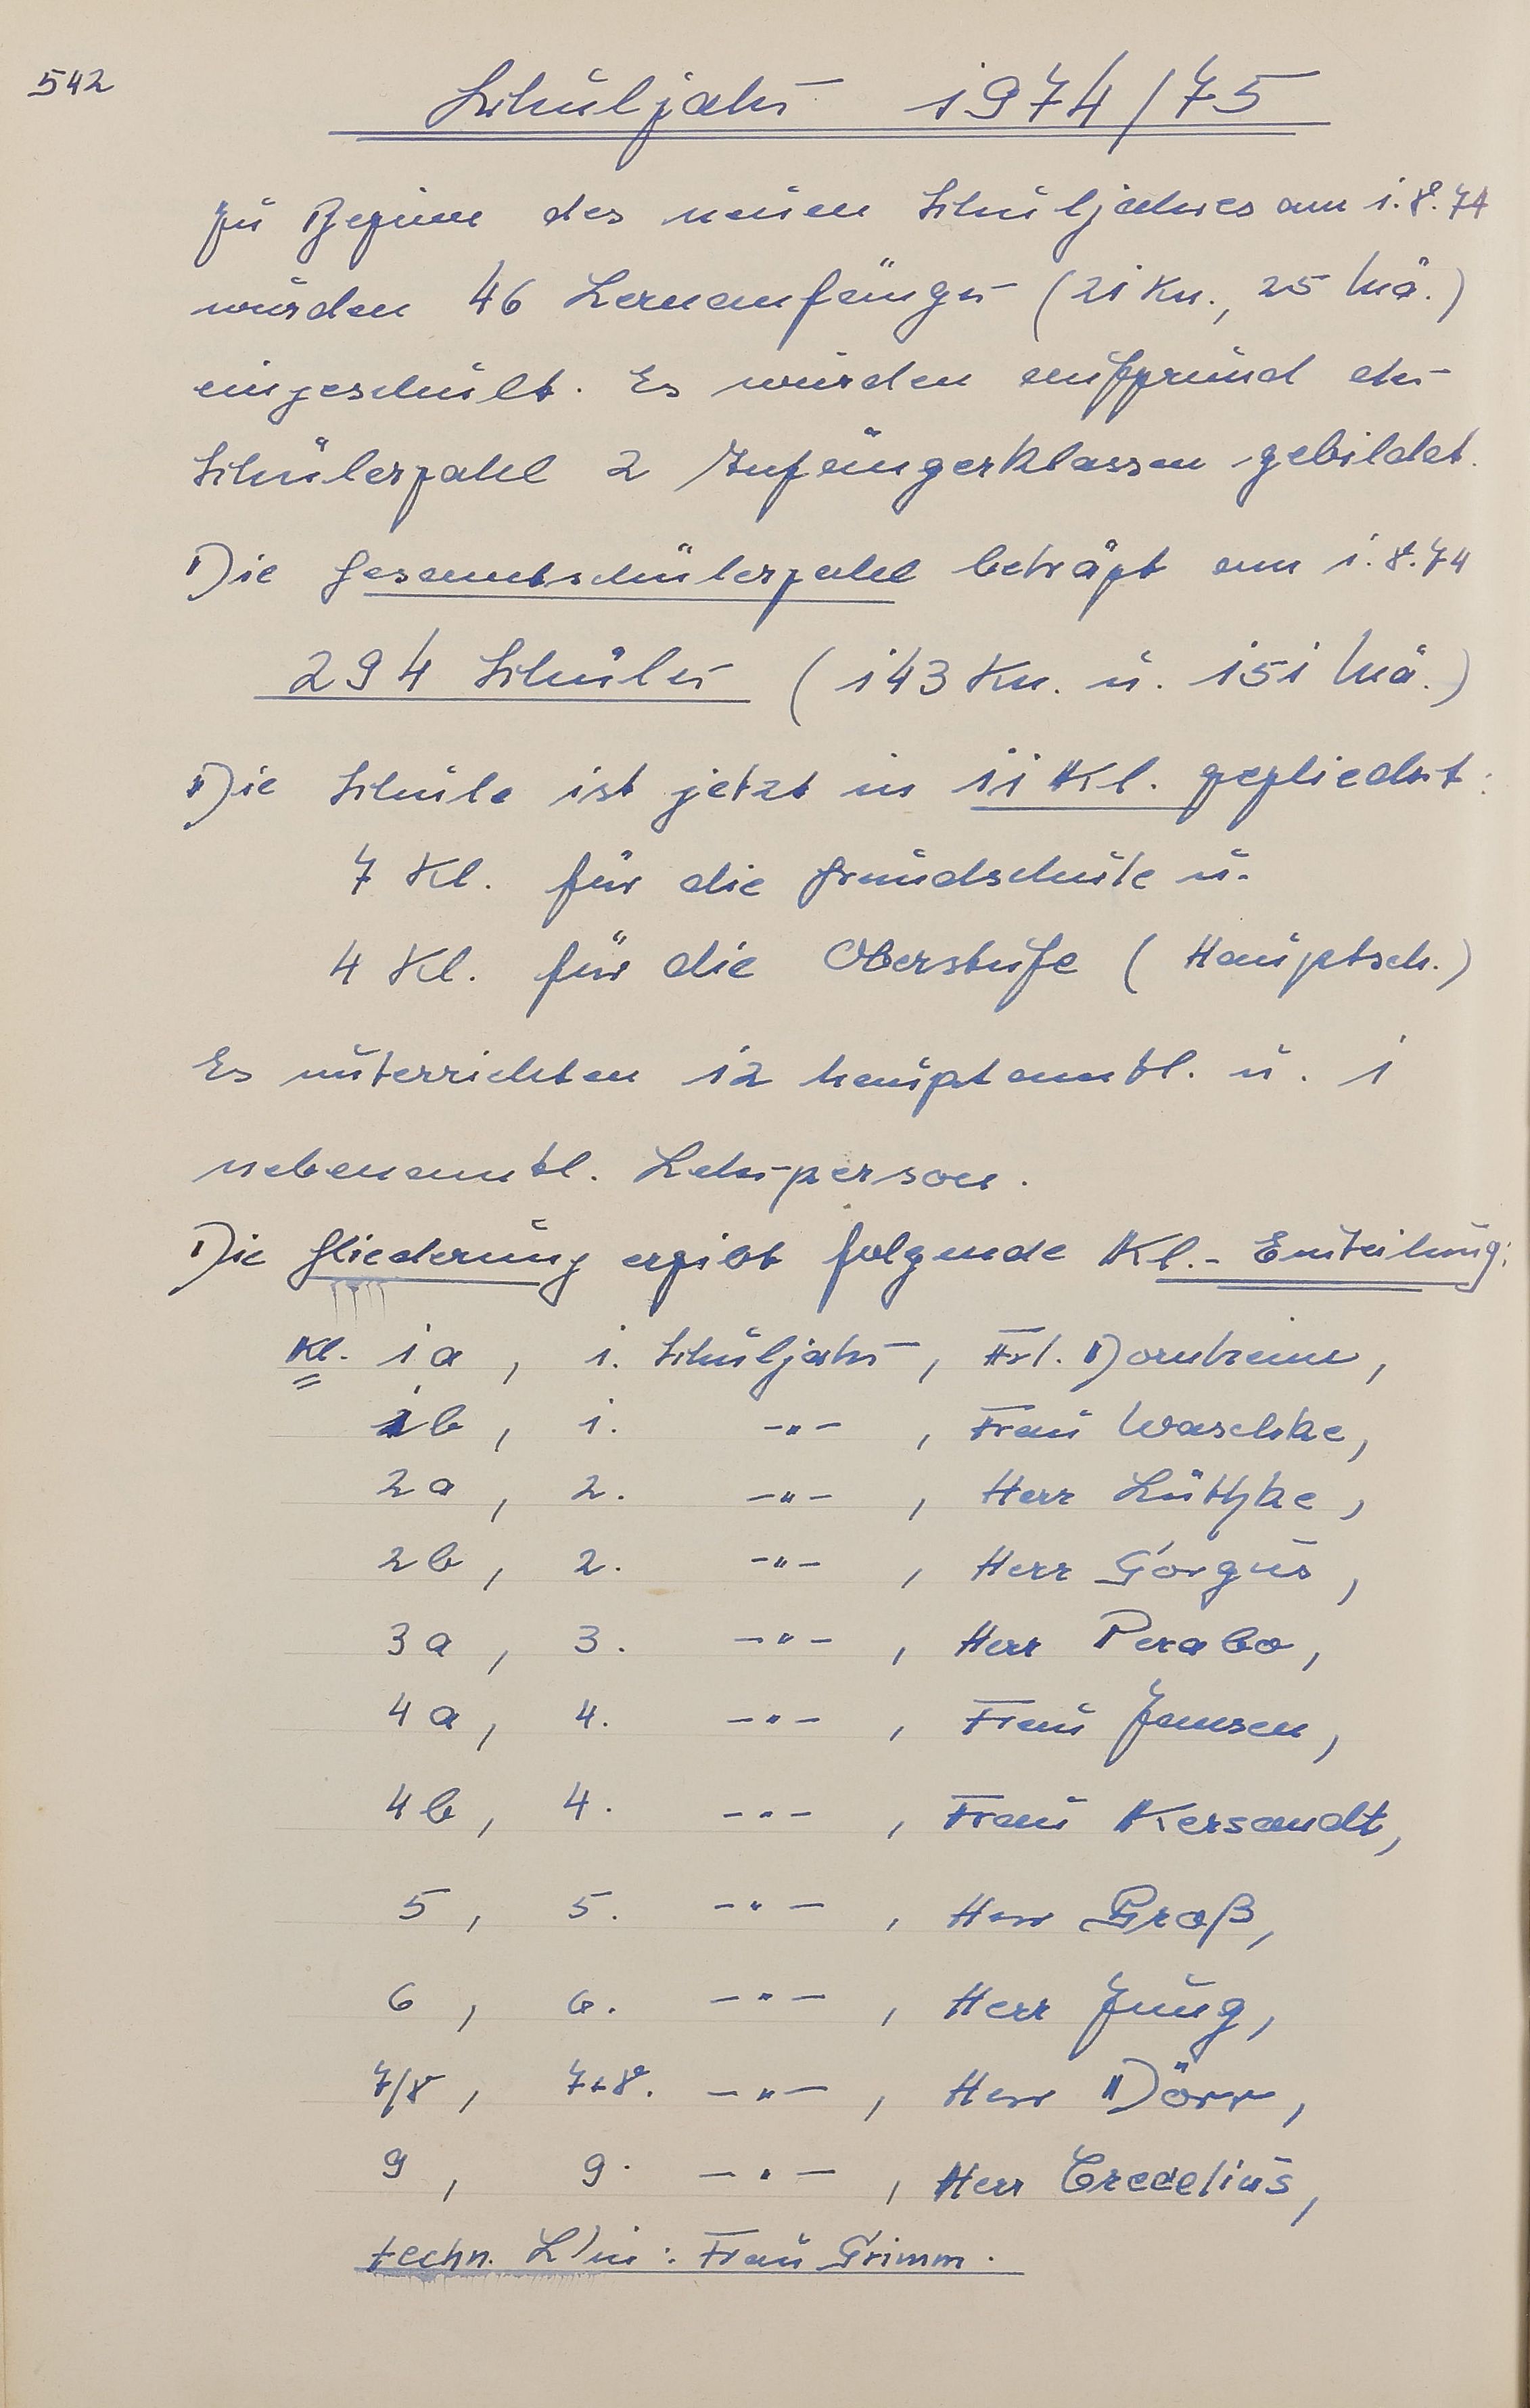 542
Schuljahr 1974/75
Zu Beginn des neuen Schuljahres am 1.8.74
wurden 46 Lernanfänger (21 Kn., 25 Mä.)
eingeschult. Es wurden aufgrund der
Schülerzahl 2 Anfängerklassen gebildet.
Die Gesamtschülerzahl beträgt am 1.8.74
294 Schüler (143 Kn. u. 151 Mä.)
Die Schule ist jetzt in 11 Kl. gegliedert:
7 Kl. für die Grundschule u.
4 Kl. für die Oberstufe (Hauptsch.)
Es unterrichten 12 hauptamtl. u. 1
nebenamtl. Lehrperson.
Die Gliederung ergibt folgende Kl.-Einteilung:
Kl. 1a, 1. Schuljahr, Frl. Dornheim,
1b, 1. -"-, Frau Waschke,
2a, 2. -"-, Herr Lüthke,
2b, 2. -"-, Herr Gorgus,
3a, 3. -"-, Herr Perabo,
4a, 4. -"-, Frau Jansen,
4b, 4. -"-, Frau Kersandt,
5, 5. -"-, Herr Groß,
6, 6. -"-, Herr Jung,
7/8, 7+8. -"-, Herr Dörr,
9, 9. -"-, Herr Credelius,
techn. L'in: Frau Grimm.